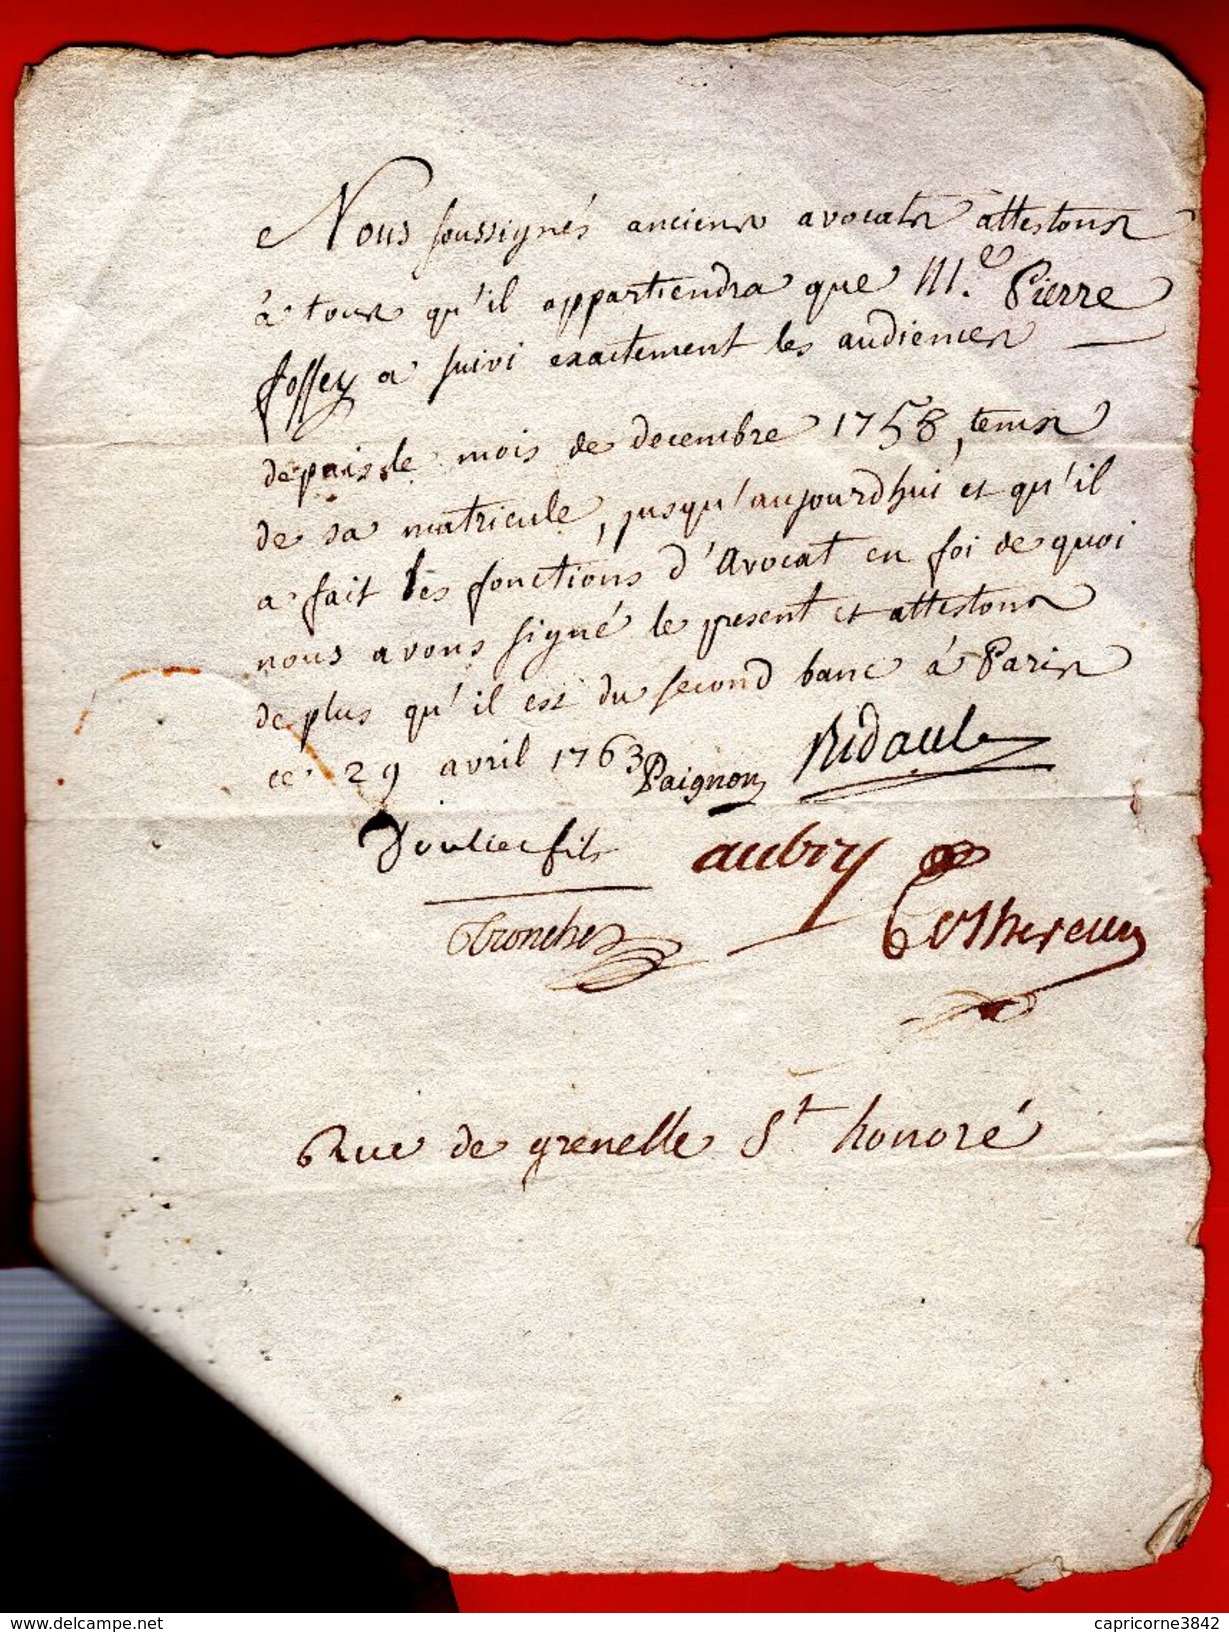 Nous soussignés anciens avocats attestons
à tous qu'il appartiendra que M.e Pierre
fossey a suivi exactement les audiences
depuis le mois de decembre 1758, tems
de sa matricule, jusqu'aujourdhui et qu'il
a fait les fonctions d'Avocat en foi de quoi
nous avons signé le present et attestons
de plus qu'il est du second banc à Paris
ce 29 avril 1763
Paignon Ridault
fils aubry
Tronchet
Rue de grenelle St honoré
delcampe.net
capricorne3842